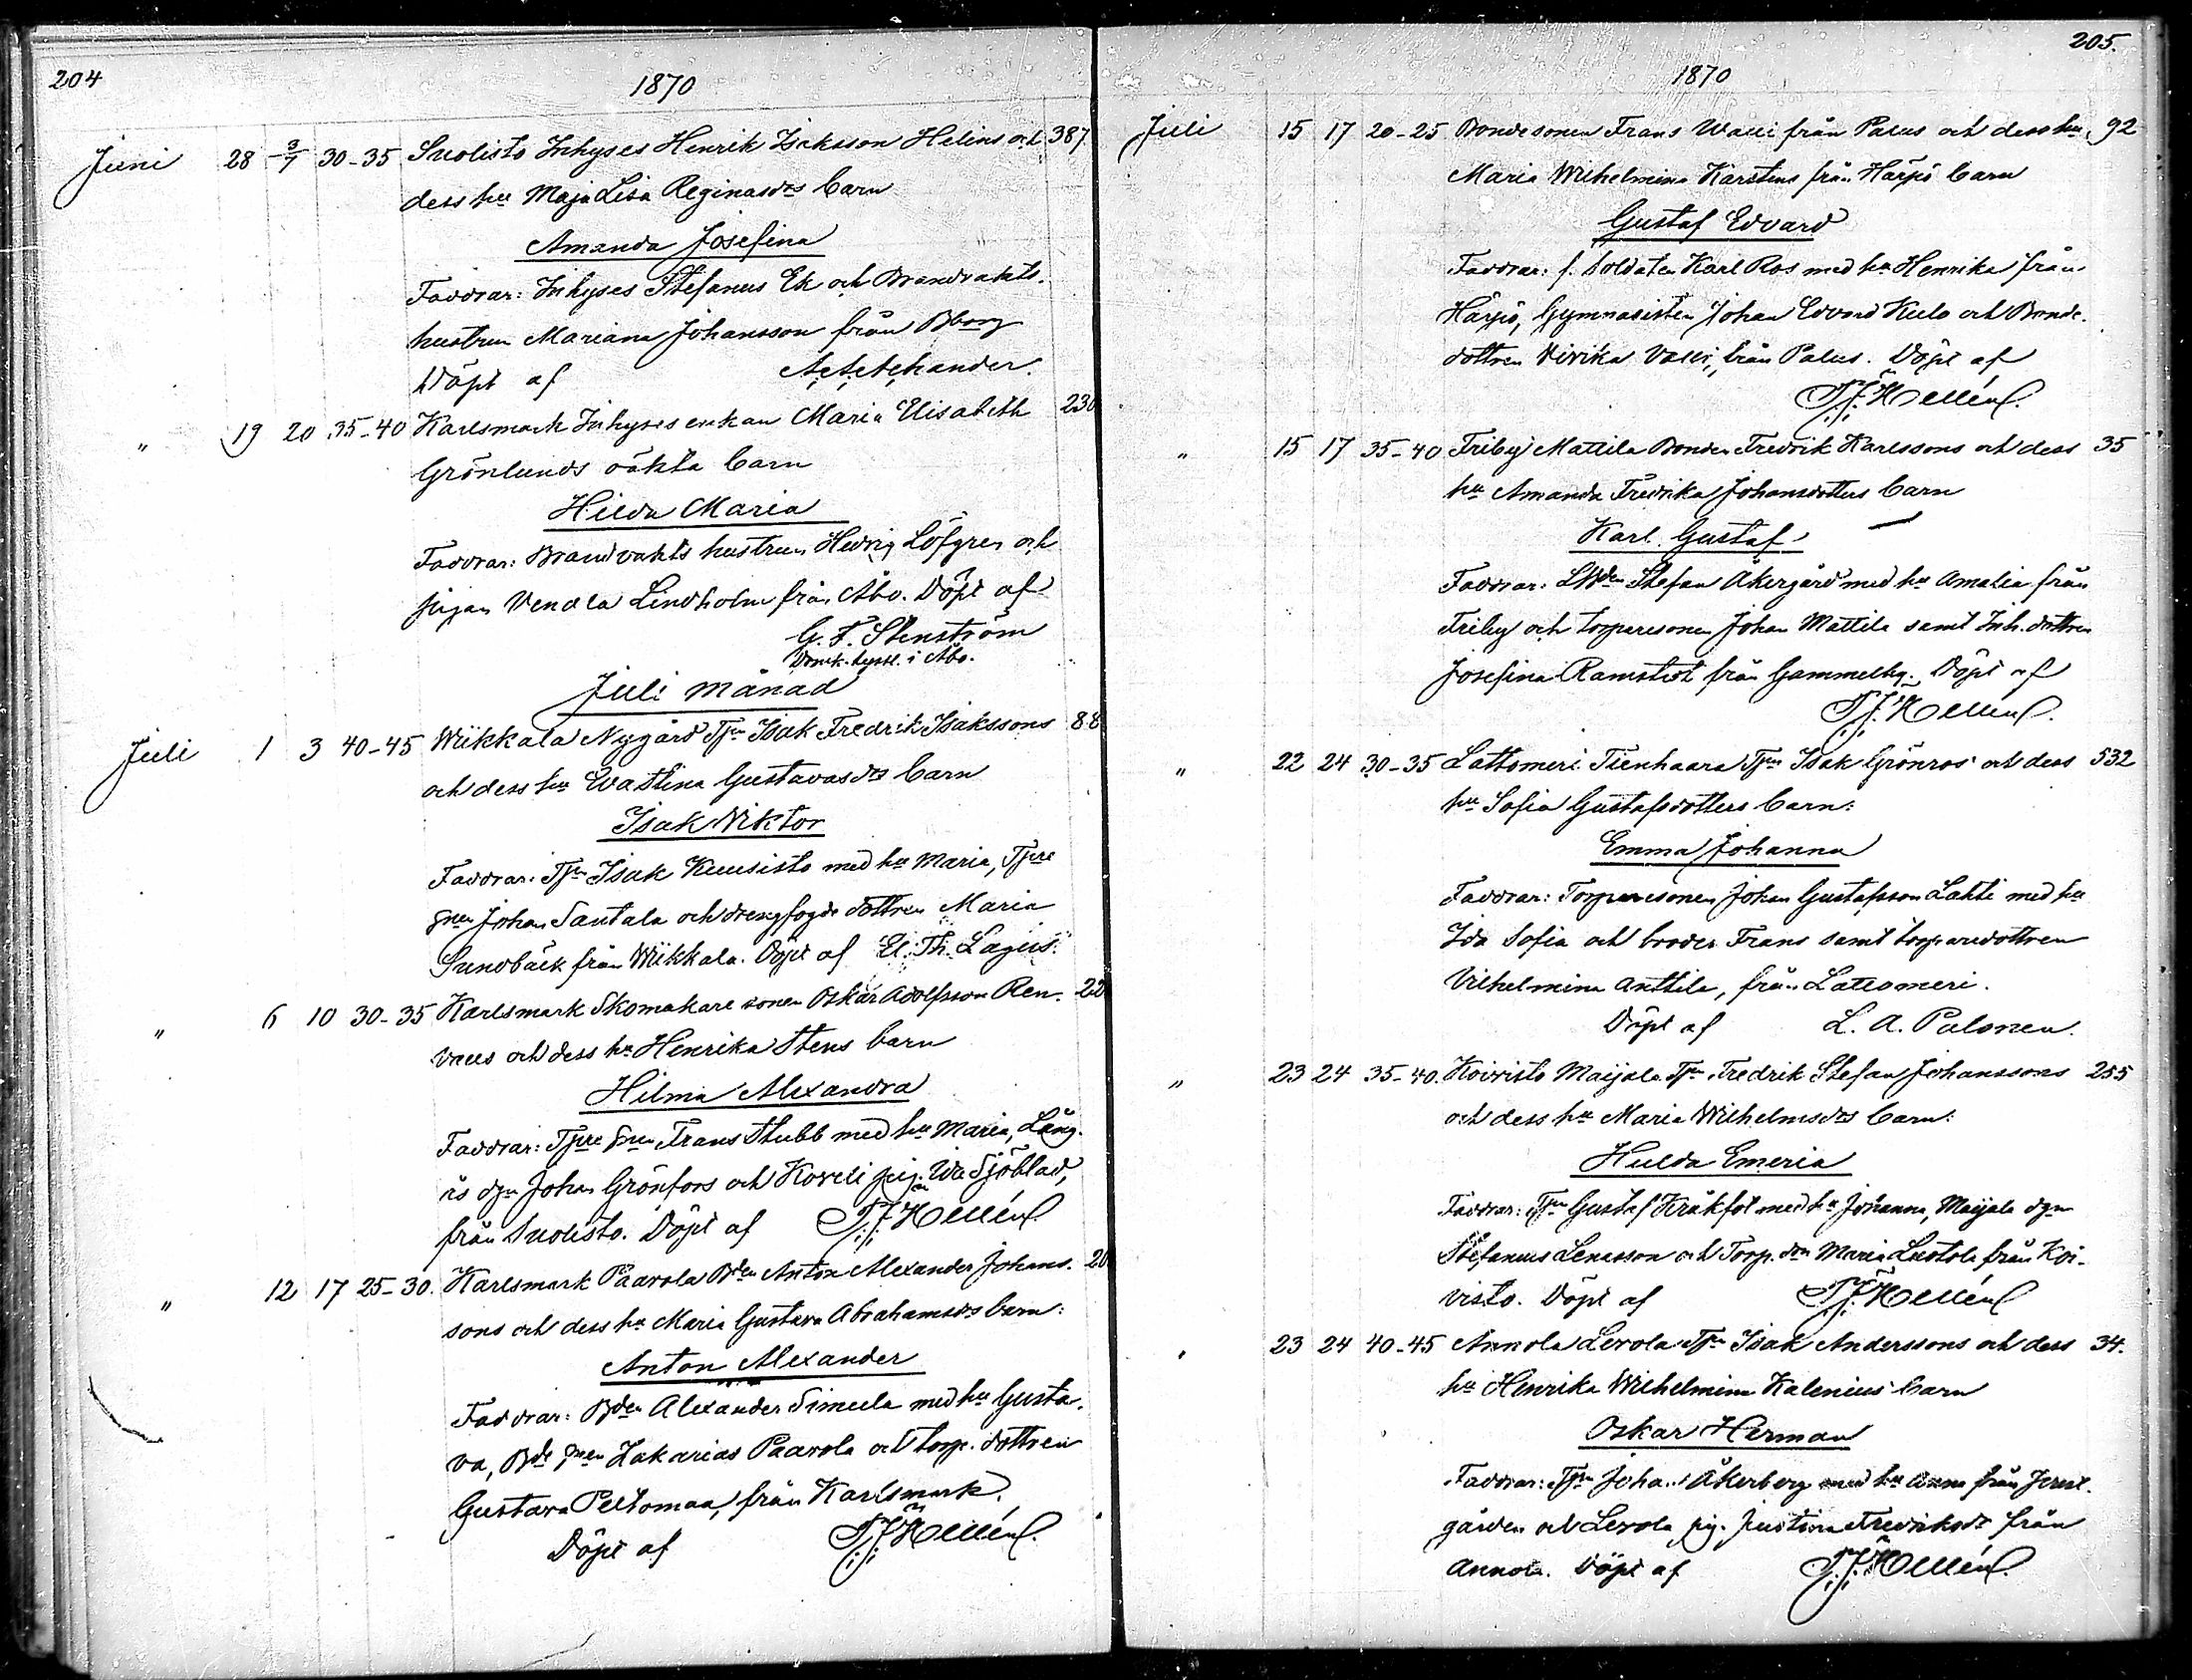 204
1870
Juni 28 3/7 30-35 Suolisto Inhyses Henrik Isaksson Helins och 387
dess hu Maja Lisa Reginasdrs barn
Amanda Josefina
Faddrar: Inhyses Stefanus Ek och Brandvakts-
hustrun Mariana Johansson från Bborg
Döpt af
" 19 20 35-40 Karlsmark Inhyses enkan Maria Elisabeth 230
Grönlunds oäkta barn
Hilda Maria
Faddrar: Brandvakts hustrun Hedvig Löfgren och
pigan Vendla Lindholm från Åbo. Döpt af
G. F. Stenström
i Åbo.
Juli månad
Juli 1 3 40-45 Wiikkala Nygård Tjn Isak Fredrik Isakssons 88
och dess hu Eva Stina Gustavasdrs barn
Isak Viktor
Faddrar: Tjn Isak Kuusisto med hu Maria, Tjre
snen Johan Santala och drengfogde dottren Maria
Sundbäck från Wiikkala. Döpt af El. Th. Lagus.
" 6 10 30-35 Karlsmark Skomakare sonen Oskar Adolfsson Ren- 22
valls och dess hu Henrika Stens barn
Hilma Alexandra
Faddrar: Tjre snen Frans Stubb med hu Maria, Lång-
ås dgn Johan Grönfors och Koveli pig. Ida Sjöblad,
från Suolisto. Döpt af F. J. Hellén
" 12 17 25-30. Karlsmark Paavola Bden Anton Alexander Johans- 20
sons och dess hu Maria Gustava Abrahamsdrs barn:
Anton Alexander
Faddrar: Bden Alexander Simula med hu Gusta-
va, Bde snen Zakarias Paavola och torp. dottren
Gustava Peltomaa, från Karlsmark.
Döpt af F. J. Hellén.
205.
1870
Juli 15 17 20-25 Bondesonen Frans Walli från Palus och dess hu 92
Maria Wilhelmina Karstens från Härpö barn
Gustaf Edvard
Faddrar: f. Soldaten Karl Ros med hu Henrika från
Härpö, Gymnasisten Johan Edvard Kulo och Bonde-
dottren Vivika Valli, från Palus. Döpt af
F. J. Hellén.
" 15 17 35-40 Friby Mattila Bonden Fredrik Karlssons och dess 35
hu Amanda Fredrika Johansdotters barn
Karl Gustaf
Faddrar: Stefan Åkergård med hu Amalia från
Friby och torparesonen Johan Mattila samt Inh. dottren
Josefina Ramstedt från Gammelby. Döpt af
F. J. Hellén.
" 22 24 30-35 Lattomeri Tienhaara Tjn Isak Grönros och dess 532
hu Sofia Gustafsdotters barn:
Emma Johanna
Faddrar: Torparesonen Johan Gustafsson Lahti med hu
Ida Sofia och broder Frans samt torparedottren
Vilhelmina Anttila, från Lattomeri.
Döpt af L. A. Palonen.
" 23 24 35-40. Koivisto Maijala Tjn Fredrik Stefan Johanssons 255
och dess hu Maria Wilhelmsdrs barn:
Hulda Emeria
Faddrar: Tjn Gustaf Kråkfot med hu Johanna, Maijala dgn
Stefanus Lenasson och Torp. drn Maria Luotola från Koi-
visto. Döpt af F. J. Hellén
" 23 24 40-45 Annola Levola Tjn Isak Anderssons och dess 34.
hu Henrika Wilhelmina Kalenius barn
Oskar Herman
Faddrar: Tjn Johan Åkerberg med hu Anna från
gården och Levola pig. Justina Fredriksdr från
Annola. Döpt af F. J. Hellén.